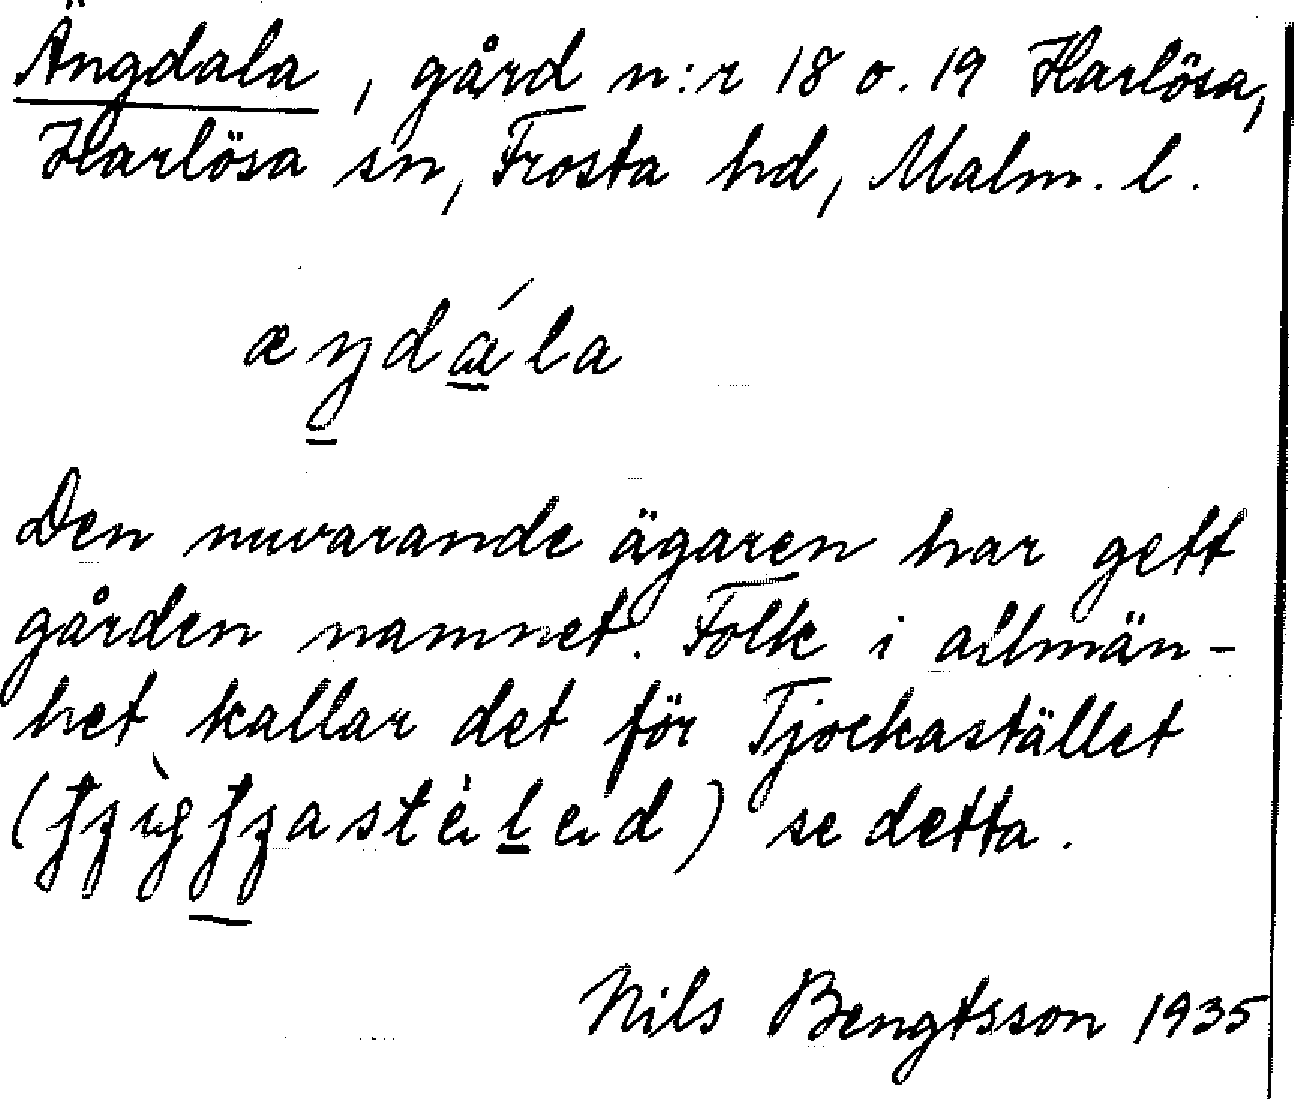 Ängdala, gård n:r 18 o. 19 Harlösa,
Harlösa sn, Frosta hd, Malm. l.
æŋdá̲la
Den nuvarande ägaren har gett
gården namnet. Folk i allmän-
het kallar det för Tjockastället
se detta.
Nils Bengtsson 1935